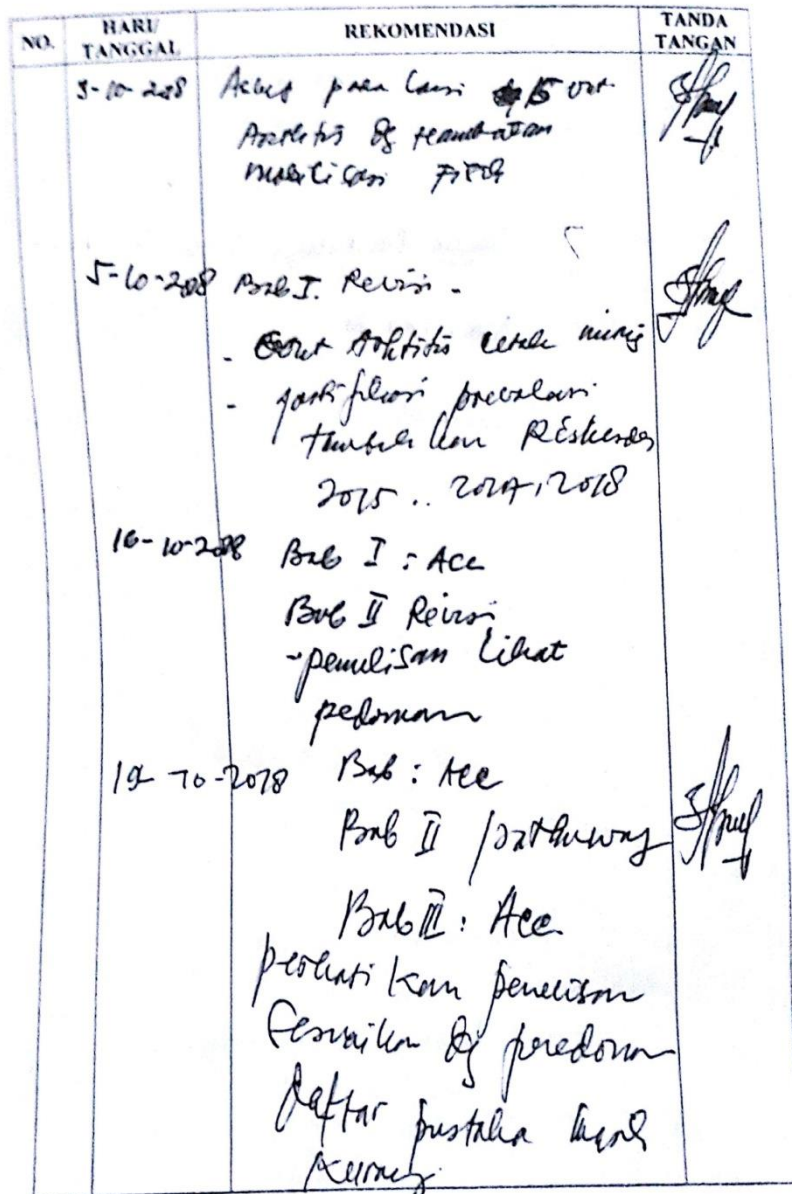 NO. HARI/ TANGGAL REKOMENDASI TANDA TANGAN
3-10-2018 Askep pada Lansia dg
Arthritis dg Hambatan
mobilisasi Fisik
5-10-2018 Bab I. Revisi -
- Gout Arthtitis
- justifikasi prevalensi
tambahkan Riskesdas
2015 .. 2017, 2018
16-10-2018 Bab I : Acc
Bab II Revisi
- penulisan lihat
pedoman
19-10-2018 Bab : Acc
Bab II pathway
Bab III : Acc
perhatikan penulisan
Sesuaikan dg
daftar pustaka masih
kurang